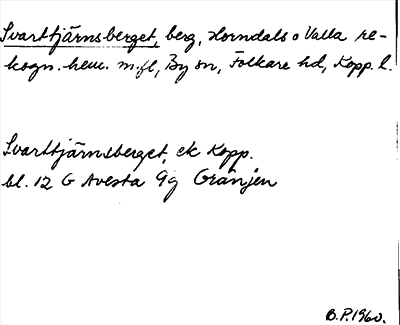 Svarttjärnsberget, berg, Horndals o Valla re-
kogn. hem. m.fl, By sn, Folkare hd, Kopp. l.
Svarttjärnsberget, ek Kopp.
bl. 12 G Avesta 9g Gränjen
B.P. 1960.